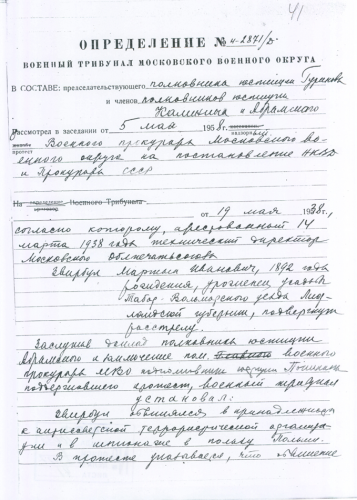 41
ОПРЕДЕЛЕНИЕ № н-2871/58
ВОЕННЫЙ ТРИБУНАЛ МОСКОВСКОГО ВОЕННОГО ОКРУГА
В СОСТАВЕ: председательствующего полковника юстиции Гуринова
и членов полковников юстиции
Калинина и Абрамского
Рассмотрел в заседании от 5 мая 1958 г.
протест Военного прокурора Московского во-
енного округа на постановление НКВД
и Прокурора СССР
На Военного Трибунала
от 19 мая 1938 г.,
согласно которому, арестованный 14
марта 1938 года технический директор
Московского
Звирбул Мартын Иванович, 1892 года
рождения, уроженец усадьбы
Табор-Вольмарского уезда Лиф-
ляндской губернии, подвергнут
расстрелу.
Заслушав доклад полковника юстиции
Абрамского и заключение пом. военного
прокурора МВО подполковника юстиции
поддержавшего протест, военный трибунал
установил:
Звирбул обвинялся в принадлежности
к антисоветской террористической организа-
ции и в шпионаже в пользу Польши.
В протесте указывается, что обвинение